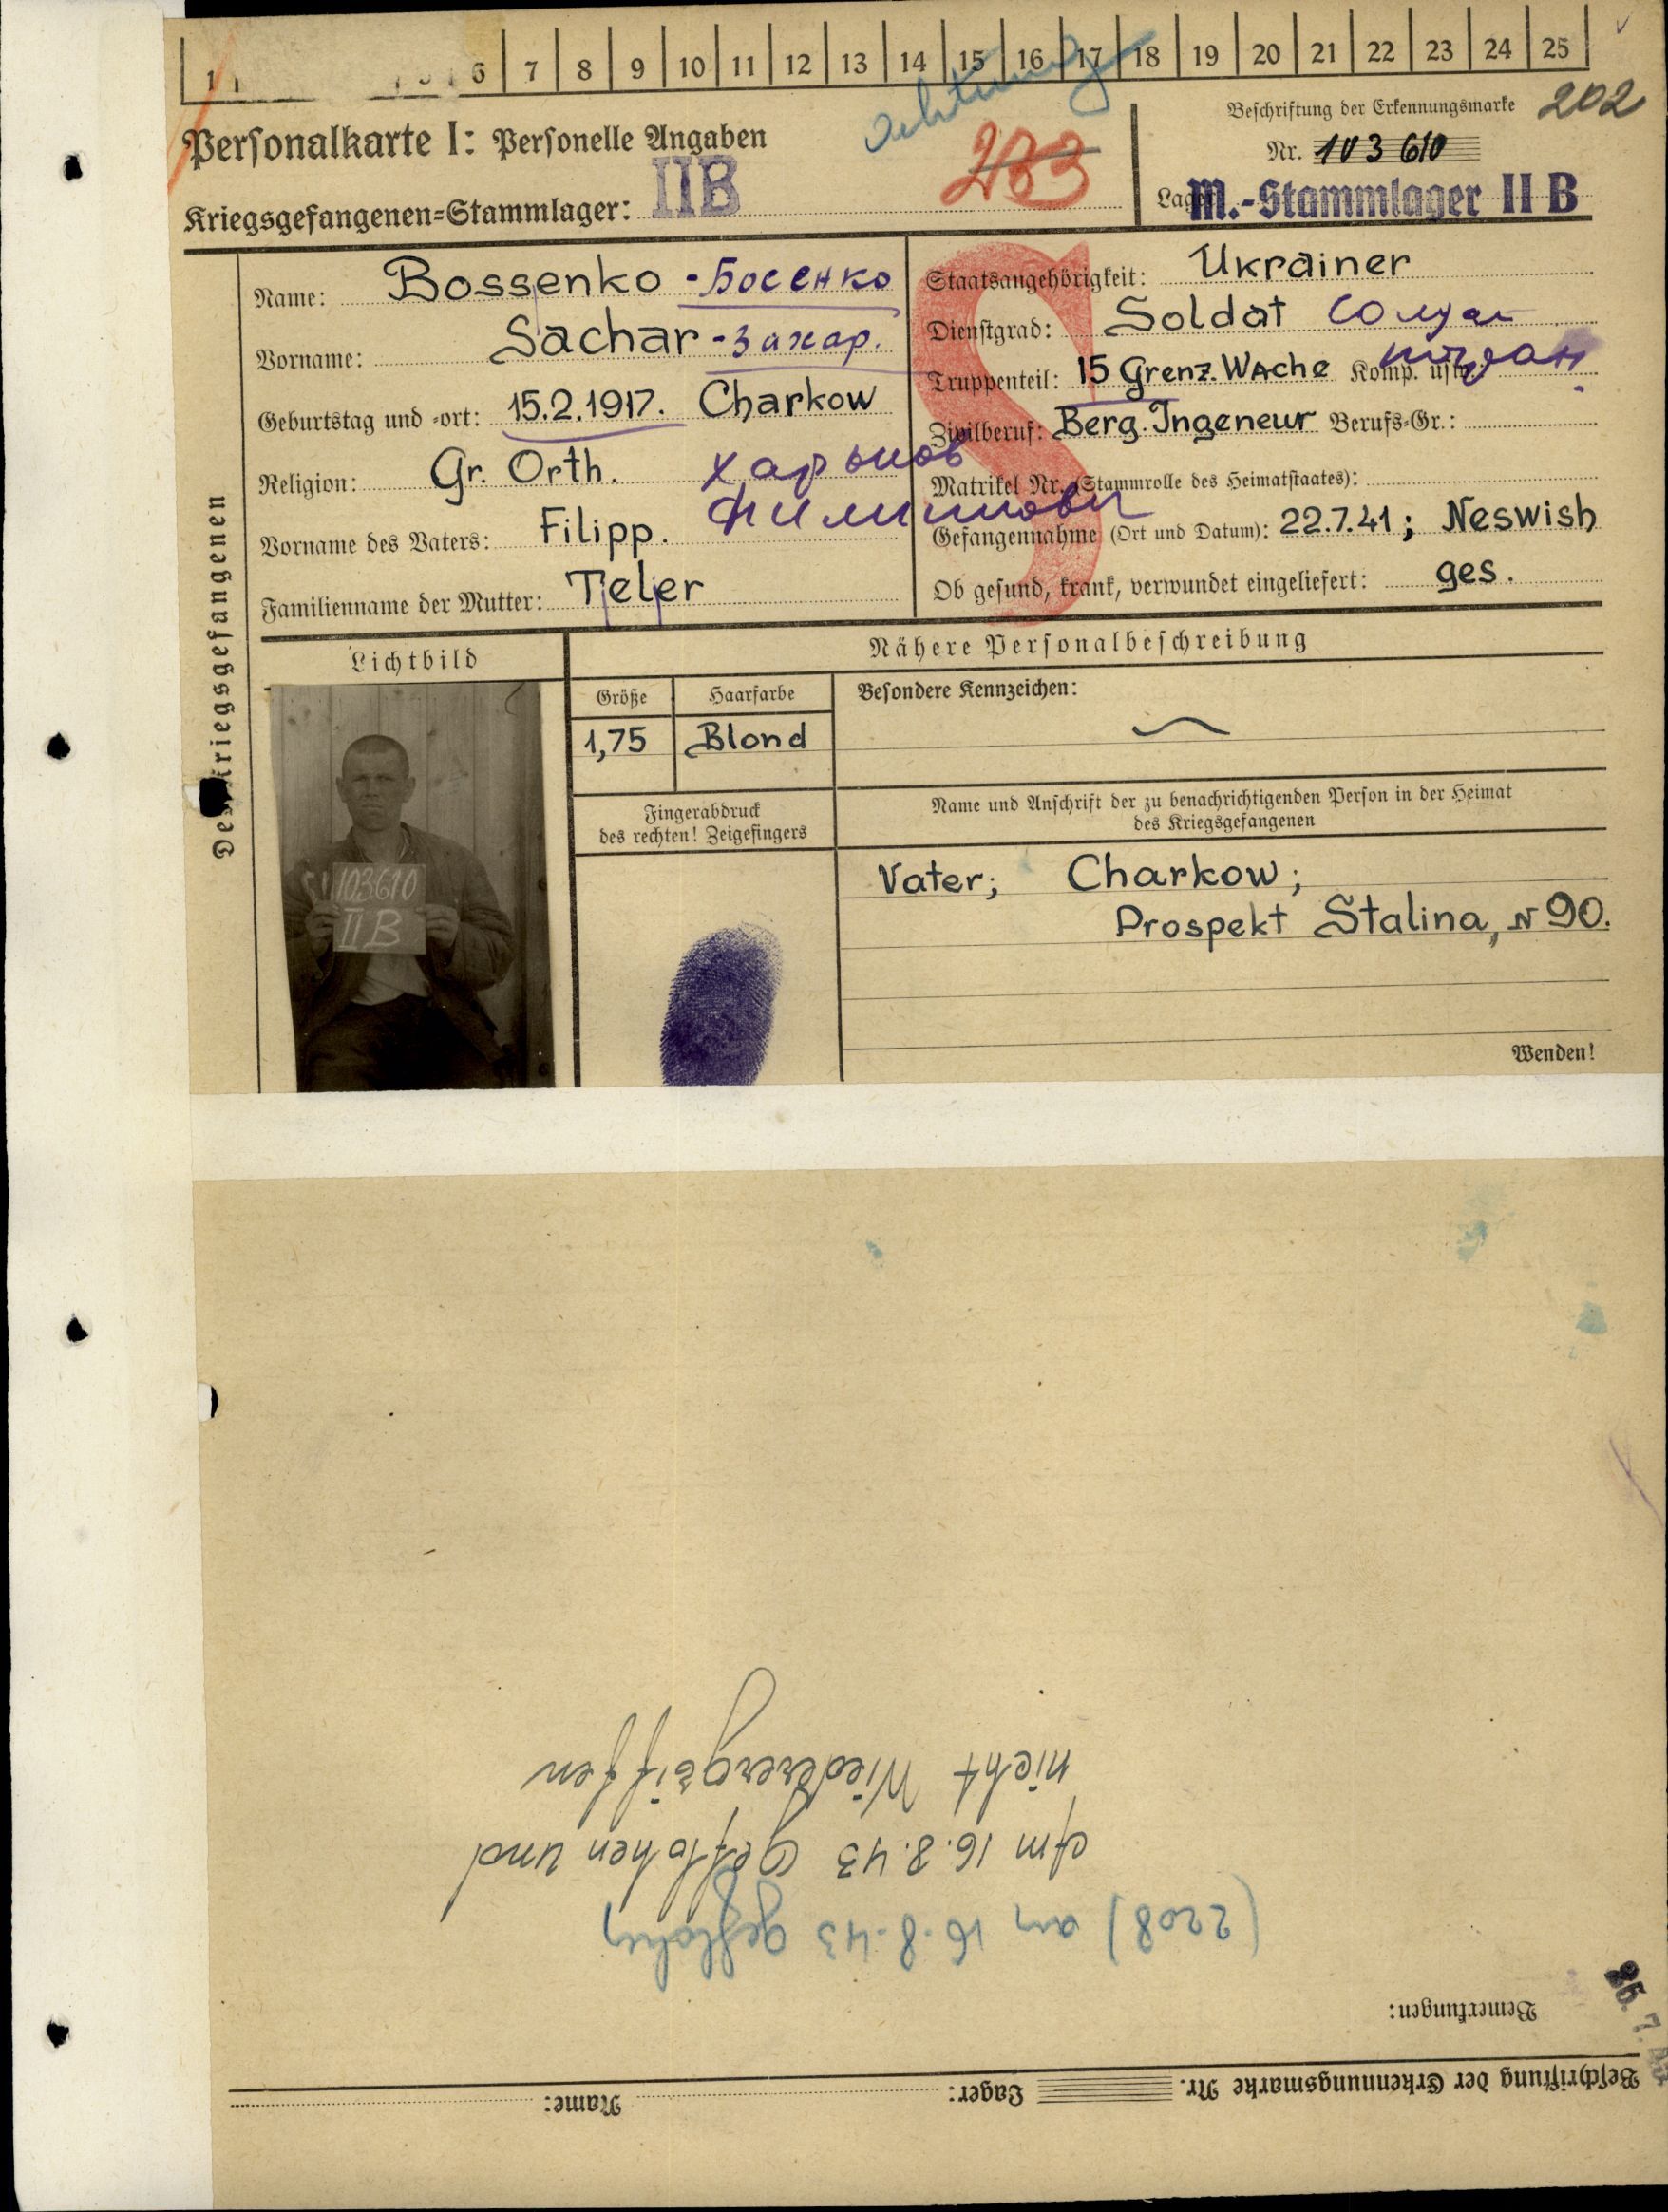 1 5 6 7 8 9 10 11 12 13 14 15 16 17 18 19 20 21 22 23 24 25
Achtung
Beschriftung der Erkennungsmarke 202
Personalkarte I: Personelle Angaben
233
Nr. 103 610
Kriegsgefangenen-Stammlager: II B
Lager: M.-Stammlager II B
Des Kriegsgefangenen
Name: Bossenko - Босенко
Vorname: Sachar - Захар.
Geburtstag und -ort: 15.2.1917. Charkow
Харьков
Religion: Gr. Orth.
Vorname des Vaters: Filipp. Филиппович
Familienname der Mutter: Teler
S
Staatsangehörigkeit: Ukrainer
Dienstgrad: Soldat Солдат
Truppenteil: 15 Grenz. Wache Komp. usw.:
Zivilberuf: Berg. Ingeneur Berufs-Gr.:
Matrikel Nr. (Stammrolle des Heimatstaates):
Gefangennahme (Ort und Datum): 22.7.41; Neswish
Ob gesund, krank, verwundet eingeliefert: ges.
Lichtbild
103610
II B
Nähere Personalbeschreibung
Größe Haarfarbe Besondere Kennzeichen:
1,75 Blond
Fingerabdruck
des rechten! Zeigefingers
Name und Anschrift der zu benachrichtigenden Person in der Heimat
des Kriegsgefangenen
Vater; Charkow;
Prospekt Stalina, N 90.
Wenden!
Beschriftung der Erkennungsmarke Nr. Lager: Name:
Bemerkungen:
25. 7.
(2208) am 16.8.43 geflohen
Am 16.8.43 geflohen und
nicht Wiederergriffen